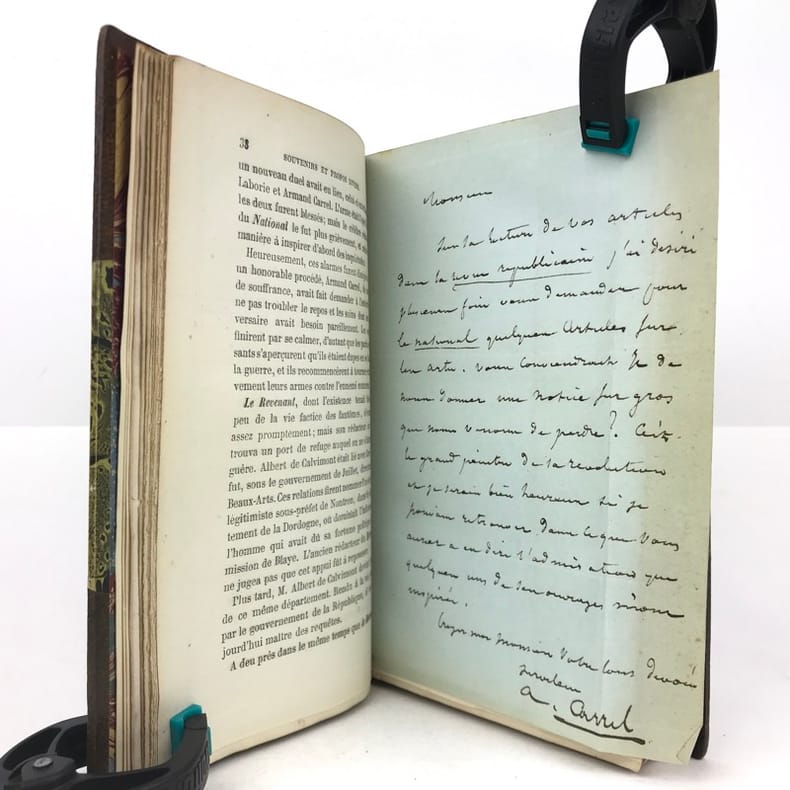 38
SOUVENIRS ET PROPOS DIVERS
un nouveau duel avait eu lieu, celui-ci
Laborie et Armand Carrel. L'arme était
les deux furent blessés; mais le
du National le fut plus grièvement, et
manière à inspirer d'abord des inquiétudes
Heureusement, ces alarmes furent
un honorable procédé, Armand Carrel,
de souffrance, avait fait demander à
ne pas troubler le repos et les soins dont
versaire avait besoin pareillement. Les
finirent par se calmer, d'autant que les
sants s'aperçurent qu'ils étaient dupes en
la guerre, et ils recommencèrent à tourner
vement leurs armes contre l'ennemi commun
Le Revenant, dont l'existence tenait
peu de la vie factice des fantômes,
assez promptement; mais son rédacteur en
trouva un port de refuge auquel on ne
guère. Albert de Calvimont était lié avec
fut, sous le gouvernement de Juillet, directeur
Beaux-Arts. Ces relations firent nommer
légitimiste sous-préfet de Nontron, dans le
tement de la Dordogne, où dominait
l'homme qui avait dû sa fortune politique
mission de Blaye. L'ancien rédacteur du
ne jugea pas que cet appui fût à repousser.
Plus tard, M. Albert de Calvimont devint
de ce même département. Rendu à la
par le gouvernement de la République, il
jourd'hui maître des requêtes.
A peu près dans le même temps que
Monsieur
Sur la lecture de vos articles
dans la revue republicaine j'ai desiré
plusieurs fois vous demander pour
le national quelques articles sur
les arts. vous conviendrait il de
nous donner une notice sur gros
que nous venons de perdre? C'est
le grand peintre de la revolution
et je serais bien heureux si je
pouvais retrouver dans ce que vous
aurez a en dire l'admiration que
quelques uns de ses ouvrages m'ont
inspirée.
Croyez moi Monsieur Votre tout devoué
serviteur
A. Carrel